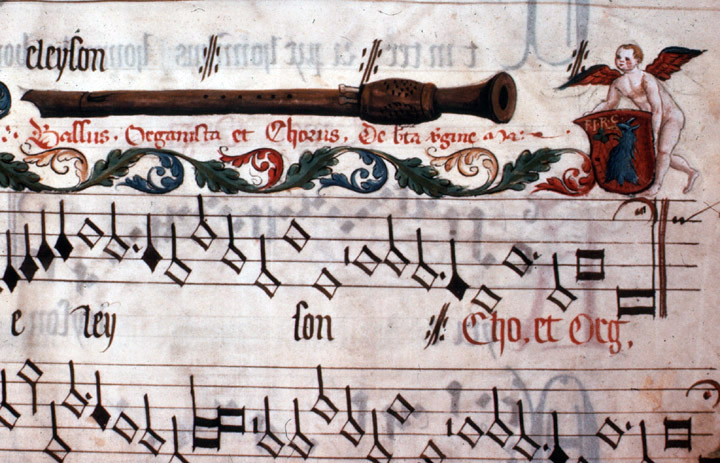 eleyson
Bassus. Organista et Chorus. De bta v̄gine
e ley son Cho. et Org.